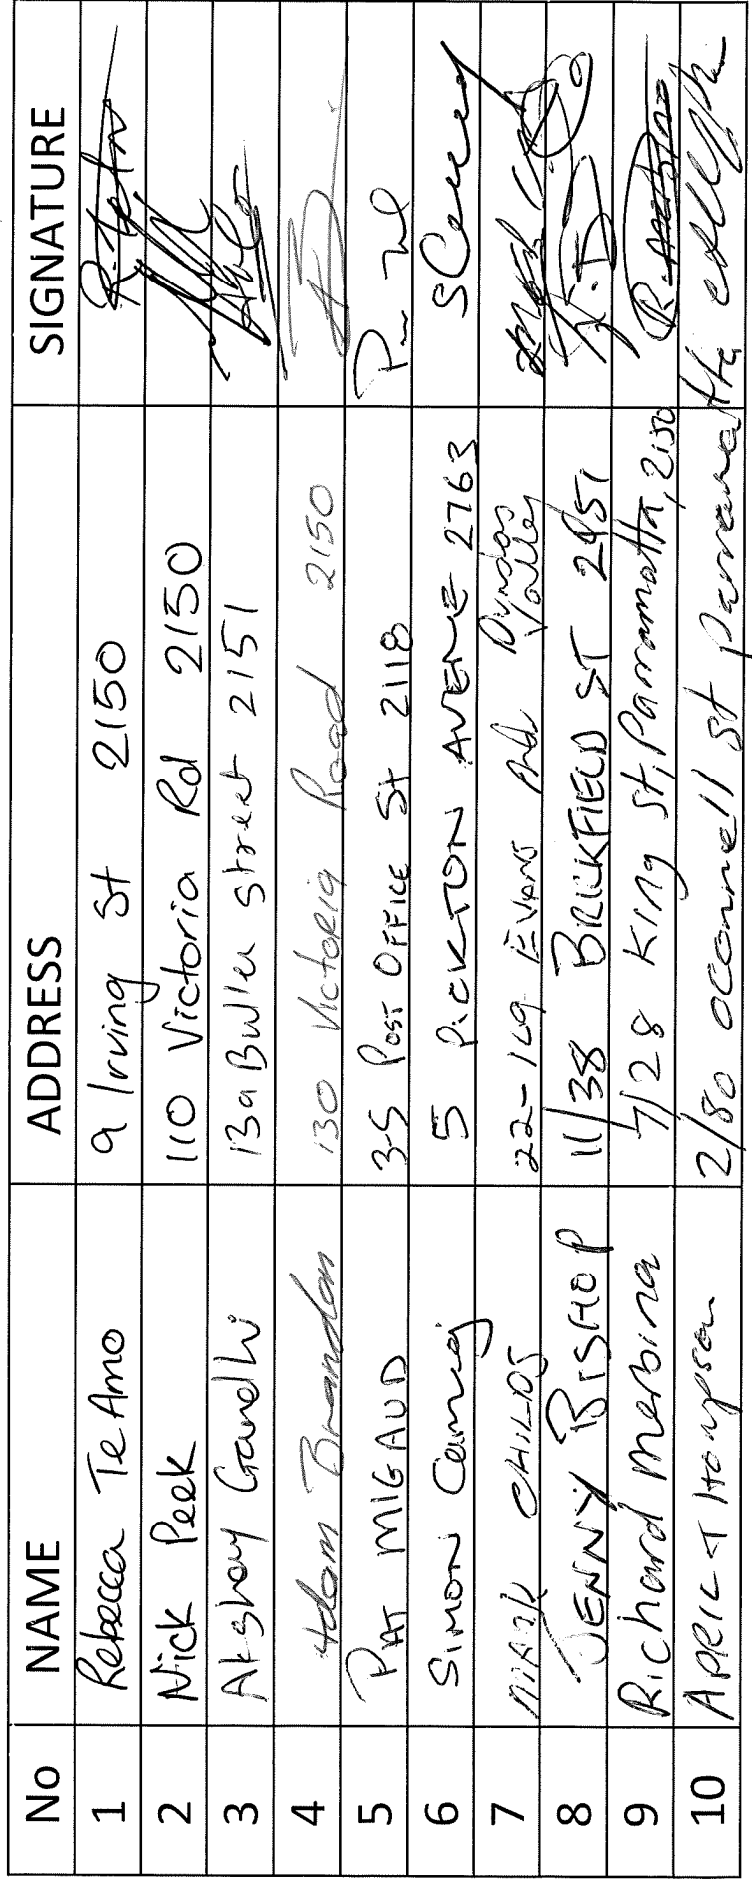 No NAME ADDRESS SIGNATURE
1 Rebecca Te Amo 9 Irving St 2150
2 Nick Peek 110 Victoria Rd 2150
3 Akshay Gandhi 13a Buller street 2151
4 Adam Brandon 130 Victoria Road 2150
5 PAT MIGAUD 3-5 POST OFFICE St 2118
6 SIMON 5 PICKTON AVENE 2763
7 MARK CHILDS 22-169 EVANS Rd Dundas Valley
8 JENNY BISHOP 11/38 BRICKFIELD ST 2151
9 Richard Merbina 4/28 King St, Parramatta, 2150
10 APRIL Thompson 2/80 oconnell st parramatta